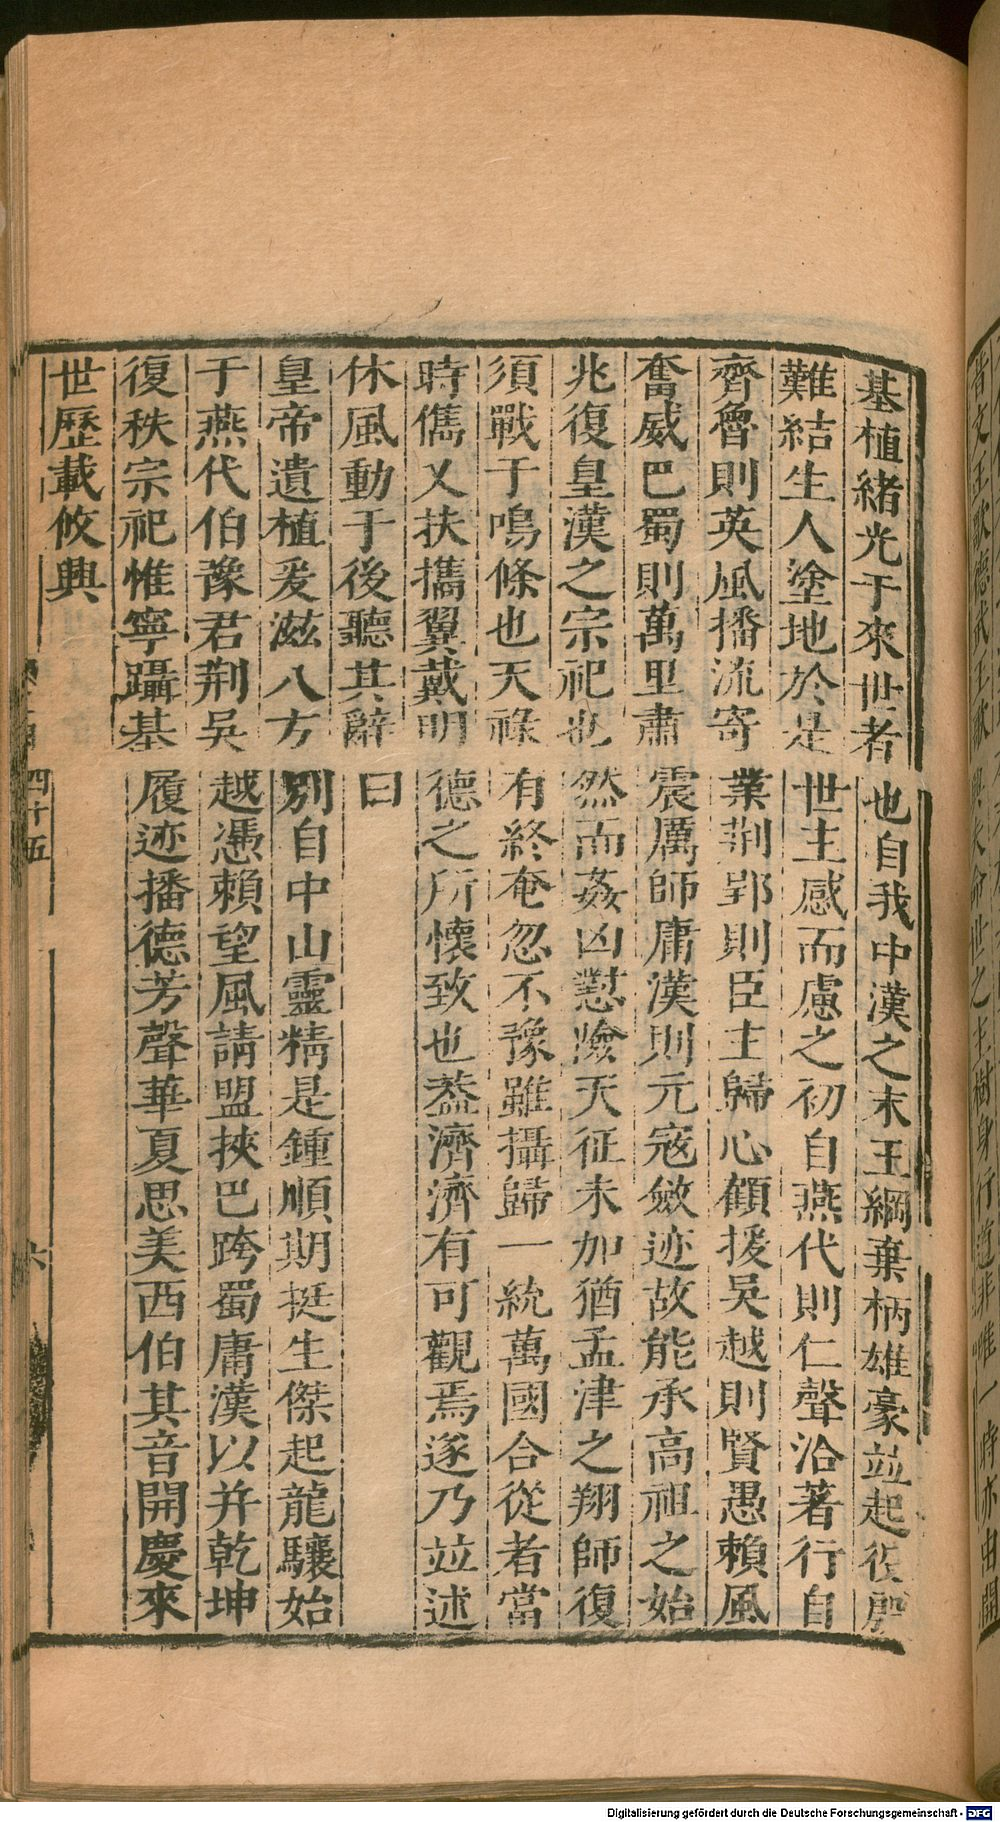 基植緒光于來世者也自我中漢之末王綱棄柄雄豪並起役殷
難結生人塗地於是世主感而慮之初自燕代則仁聲洽著行自
齊魯則英風播流寄業荆郢則臣主歸心顧援吳越則賢愚賴風
奮威巴蜀則萬里肅震厲師庸漢則元寇斂迹故能承高祖之始
兆復皇漢之宗祀也然而姦凶懟險天征未加猶孟津之翔師復
須戰于鳴條也天祿有終奄忽不豫雖攝歸一統萬國合從者當
時儁乂扶攜翼戴明德之所懷致也葢濟濟有可觀焉遂乃竝述
休風動于後聽其辭曰
皇帝遺植爰滋八方別自中山靈精是鍾順期挺生傑起龍驤始
于燕代伯豫君荆吳越憑賴望風請盟挾巴跨蜀庸漢以并乾坤
復秩宗祀惟寧躡基履迹播德芳聲華夏思美西伯其音開慶來
世歷載攸興
四十五
六
昔文王歌德武王歌興夫命世之主樹身行道非唯一時亦由開
Digitalisierung gefördert durch die Deutsche Forschungsgemeinschaft - DFG